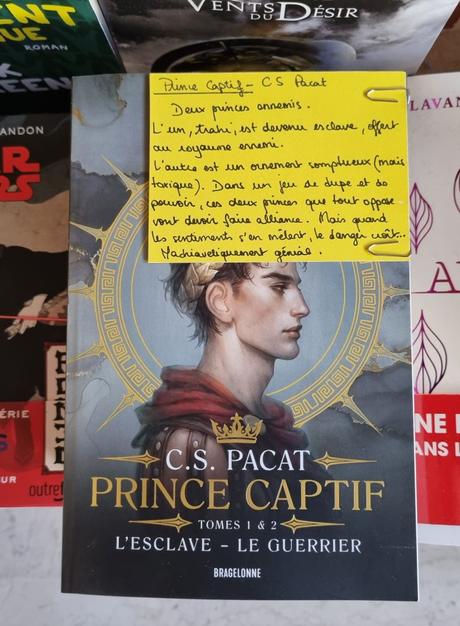 ENT
QUE
ROMAN
K
REEN
VENTS
DU DÉSIR
LAVAN
ANDON
R
RS
Prince Captif - C S Pacat
Deux princes ennemis.
L'un, trahi, est devenu esclave, offert
au royaume ennemi.
L'autre est un ornement somptueux (mais
toxique). Dans un jeu de dupe et de
pouvoir, ces deux princes que tout oppose
vont devoir faire alliance. Mais quand
les sentiments s'en mêlent, le danger croît...
Machiavéliquement génial.
A
C.S. PACAT
PRINCE CAPTIF
TOMES 1 & 2
L'ESCLAVE - LE GUERRIER
BRAGELONNE
ÉRIE
S
UR
outref
NE
ANS L